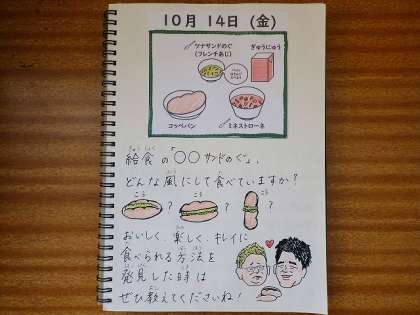 10月 14日 (金)
ツナサンドのぐ
(フレンチあじ)
ぎゅうにゅう
コッペパン
ミネストローネ
給食の「〇〇サンドのぐ」、
どんな風にして食べていますか?
こう?
こう?
こう?
おいしく、楽しく、キレイに
食べられる方法を
発見した時は
ぜひ教えてくださいね!